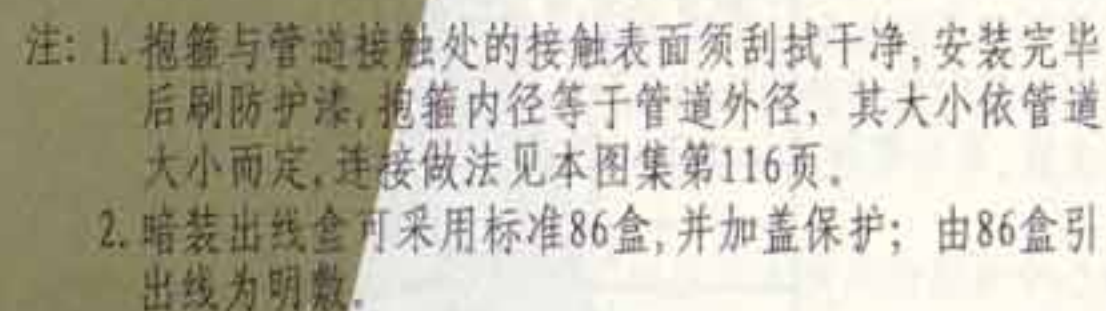 注: 1. 抱箍与管道接触处的接触表面须刮拭干净,安装完毕
后刷防护漆,抱箍内径等于管道外径，其大小依管道
大小而定,连接做法见本图集第116页。
2. 暗装出线盒可采用标准86盒,并加盖保护；由86盒引
出线为明敷。